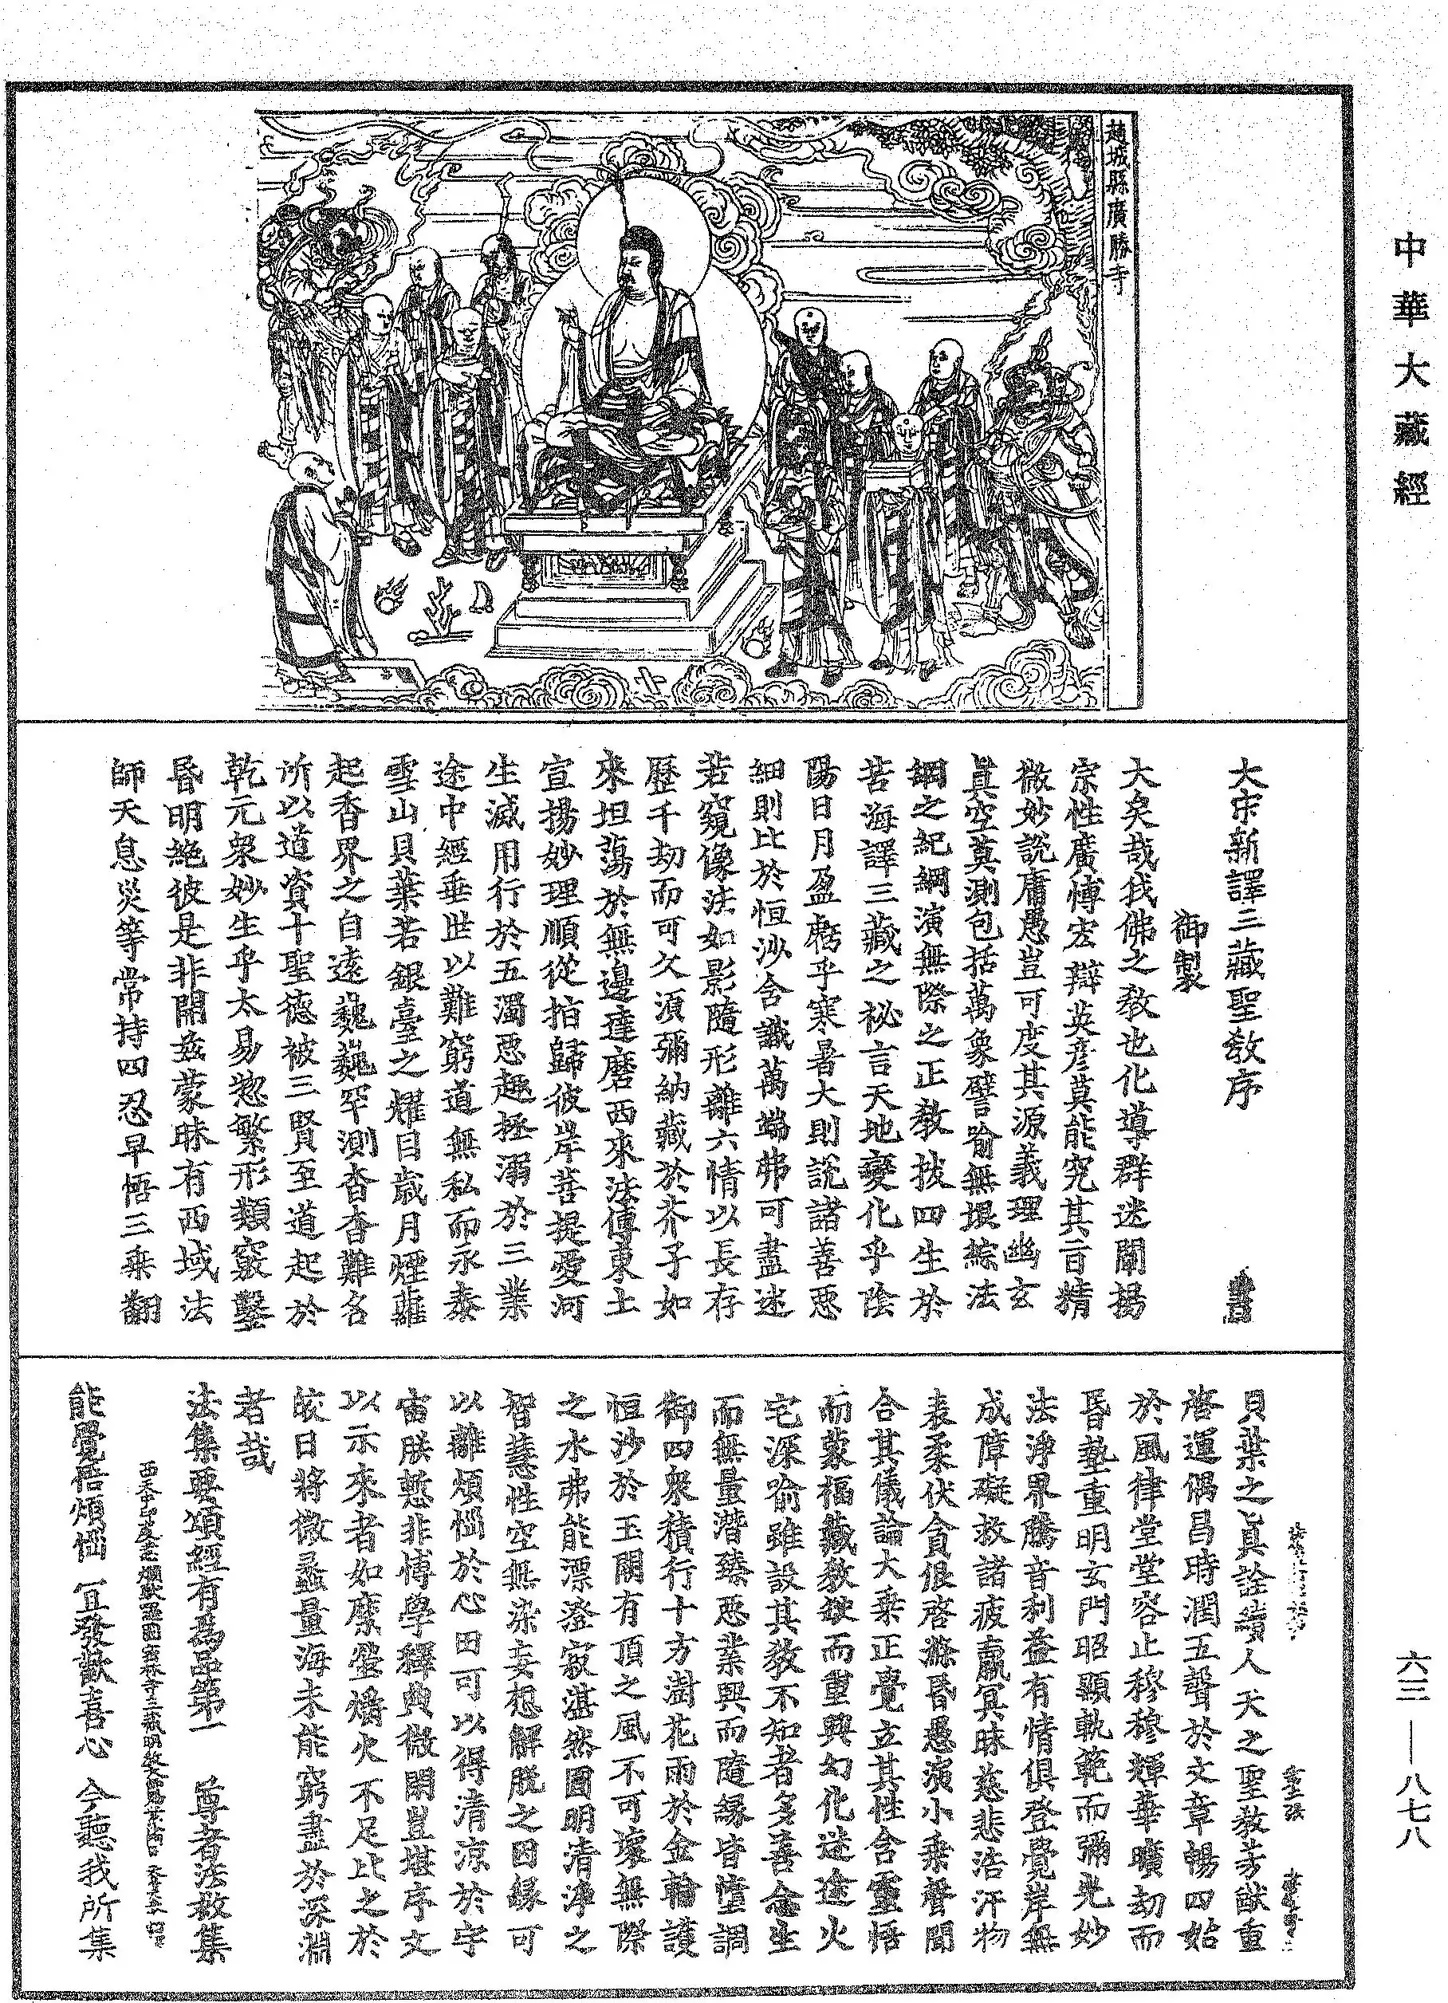 中華大藏經
趙城縣廣勝寺
大宋新譯三藏聖教序
御製
大矣哉我佛之教也化導群迷闡揚
宗性廣博宏辯英彥莫能究其旨精
微妙說庸愚豈可度其源義理幽玄
真空莫測包括萬象譬喻無垠綜法
網之紀綱演無際之正教拔四生於
苦海譯三藏之祕言天地變化乎陰
陽日月盈虧乎寒暑大則說諸善惡
細則比於恒沙含識萬端弗可盡述
若窺像法如影隨形離六情以長存
歷千劫而可久須彌納藏於芥子如
來坦蕩於無邊達磨西來法傳東土
宣揚妙理順從指歸彼岸菩提愛河
生滅用行於五濁惡趣拯溺於三業
途中經垂世以難窮道無私而永泰
雪山貝葉若銀臺之耀目歲月煙蘿
起香界之自遠巍巍罕測杳杳難名
所以道資十聖德被三賢至道起於
乾元衆妙生乎太易惣繁形類竅鑿
昏明絕彼是非開茲蒙昧有西域法
師天息災等常持四忍早悟三乘翻
貝葉之真詮續人天之聖教芳猷重
啓運偶昌時潤五聲於文章暢四始
於風律堂堂容止穆穆輝華曠劫而
昏墊重明玄門昭顯軌範而彌光妙
法淨界騰音利益有情俱登覺岸無
成障礙救諸疲羸冥昧慈悲浩汗物
表柔伏貪很啓滌昏愚演小乘聲聞
合其儀論大乘正覺立其性含靈悟
而蒙福藏教缺而重興幻化迷途火
宅深喻雖設其教不知者多善念生
而無量潛臻惡業興而隨緣皆墮調
御四衆積行十方澍花雨於金輪護
恒沙於玉關有頂之風不可壞無際
之水弗能漂澄寂湛然圓明清淨之
智慧性空無染妄想解脫之因緣可
以離煩惱於心田可以得清涼於宇
宙朕慙非博學釋典微閑豈堪序文
以示來者如縻螢爝火不足比之於
皎日將微蠡量海未能窮盡於深淵
者哉
法集要頌經有為品第一　尊者法救集
能覺悟煩惱　宜發歡喜心　今聽我所集
六三—八七八